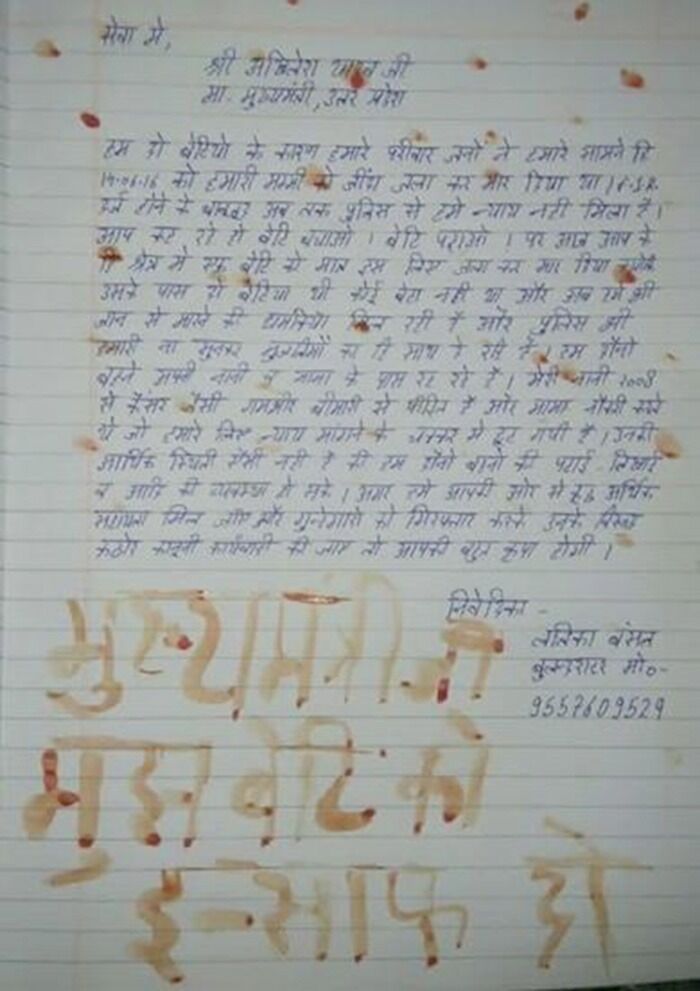 सेवा मे,
श्री अखिलेश यादव जी
मा. मुख्यमंत्री, उत्तर प्रदेश
हम दो बेटियो के कारण हमारे परीवार जनों ने हमारे सामने हि
14-06-16 को हमारी मम्मी को जींदा जला कर मार दिया था। F.I.R.
दर्ज होने के बावजूद अब तक पुलिस से हमे न्याय नही मिला है।
आप कह रहे हो बेटि बचाओ। बेटि पढाओ। पर आज आप के
ही क्षेत्र मे एक बेटि को मात्र इस लिए जला कर मार दिया क्योंकि
उसके पास दो बेटिया थी कोई बेटा नही था और अब हमे भी
जान से मारने की धमकिया मिल रही है और पुलिस भी
हमारी ना सुनकर मुजरीमों का ही साथ दे रही है। हम दोनो
बहने अपनी नानी व मामा के पास रह रहे है। मेरी नानी 2008
से कैंसर जैसी गमभीर बीमारी से पीडित है और मामा नौकरी करते
थे जो हमारे लिए न्याय मांगने के चक्कर मे छूट गयी है। उनकी
आर्थिक स्थिती ऐसी नही है की हम दोनो बहनो की पढाई लिखाई
व आदि की व्यवस्था हो सके। अगर हमे आपकी ओर से कुछ अर्थिक
सहायता मिल जाए और गुनेगारो को गिरफ्तार करके उनके विरुध
कठोर कानूनी कार्यवाही की जाए तो आपकी बहुत कृपा होगी।
निवेदिका -
लतिका बंसल
बुलन्दशहर मो०-
9557609529
मुख्यमंत्री जी
मुझ बेटि को
इन्साफ दो